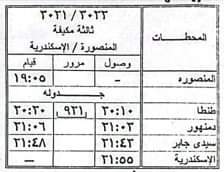 ٢٠٢١ / ٢٠٢٢
ثالثة مكيفة
المنصورة / الإسكندرية
المحطات وصول مرور قيام
المنصوره – ١٩:٠٥
جــدولـه
طنطا ٢٠:١٠ (٩٢١) ٢٠:٢٠
دمنهور ٢١:٠٣ ٢١:٠٦
سيدى جابر ٢١:٤٣ ٢١:٤٨
الإسكندرية ٢١:٥٥ —